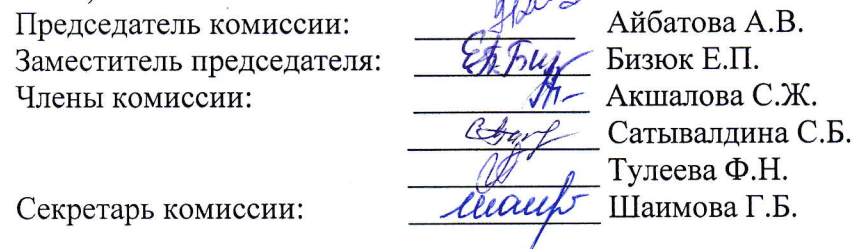 Председатель комиссии: Айбатова А.В.
Заместитель председателя: Бизюк Е.П.
Члены комиссии: Акшалова С.Ж.
Сатывалдина С.Б.
Тулеева Ф.Н.
Секретарь комиссии: Шаимова Г.Б.